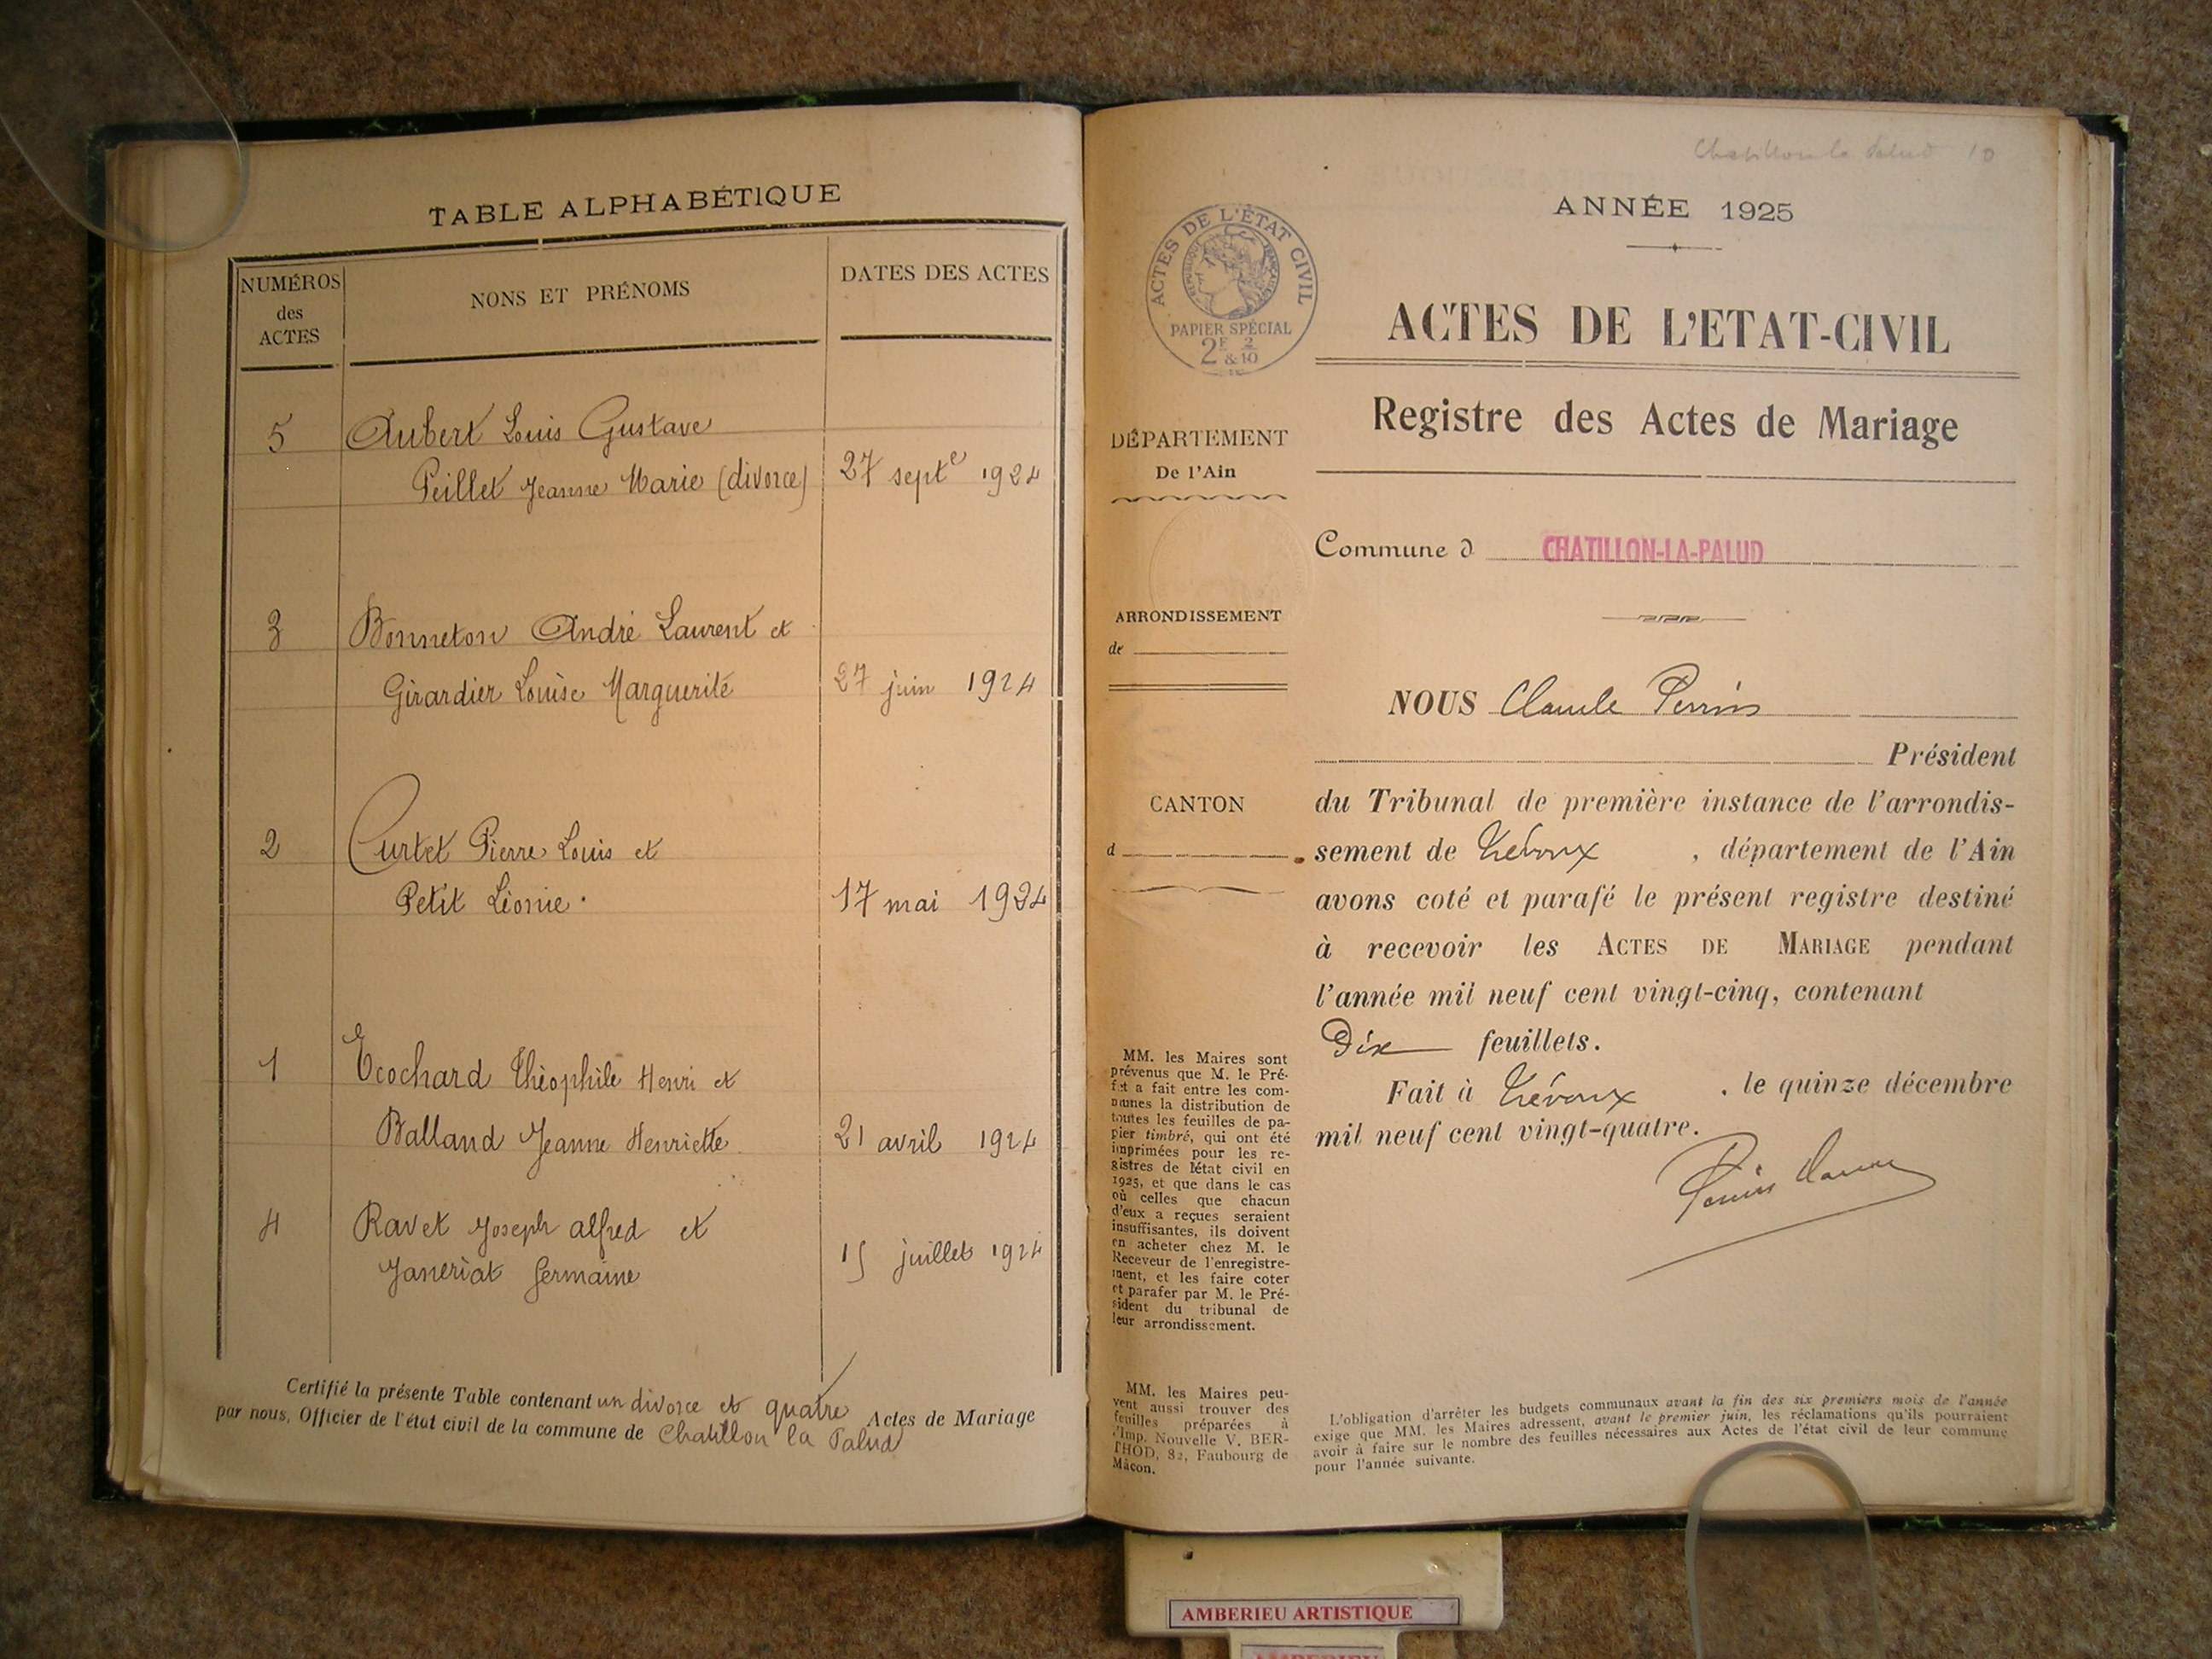 TABLE ALPHABÉTIQUE
NUMÉROS
des
ACTES
NONS ET PRÉNOMS
DATES DES ACTES
5 Aubert Louis Gustave
Peillet Jeanne Marie (divorce) 27 septe 1924
3 Bonneton André Laurent et
Girardier Louise Marguerite 27 juin 1924
2 Curtet Pierre Louis et
Petit Léonie. 17 mai 1924
1 Ecochard Théophile Henri et
Balland Jeanne Henriette 21 avril 1924
4 Ravet Joseph alfred et
Janeriat Germaine 15 juillet 1924
Certifié la présente Table contenant un divorce et quatre Actes de Mariage
par nous, Officier de l'état civil de la commune de Chatillon la Palud
Chatillon la Palud 10
ANNÉE 1925
ACTES DE L'ÉTAT CIVIL
RÉPUBLIQUE FRANÇAISE
PAPIER SPÉCIAL
2F & 2/10
ACTES DE L'ETAT-CIVIL
Registre des Actes de Mariage
DÉPARTEMENT
De l'Ain
Commune d CHATILLON-LA-PALUD
ARRONDISSEMENT
de
CANTON
d
NOUS Claude Perrin
Président
du Tribunal de première instance de l'arrondis-
sement de Trévoux , département de l'Ain
avons coté et parafé le présent registre destiné
à recevoir les ACTES DE MARIAGE pendant
l'année mil neuf cent vingt-cinq, contenant
Dix feuillets.
Fait à Trévoux , le quinze décembre
mil neuf cent vingt-quatre.
MM. les Maires sont
prévenus que M. le Pré-
fet a fait entre les com-
munes la distribution de
toutes les feuilles de pa-
pier timbré, qui ont été
imprimées pour les re-
gistres de l'état civil en
1925, et que dans le cas
où celles que chacun
d'eux a reçues seraient
insuffisantes, ils doivent
en acheter chez M. le
Receveur de l'enregistre-
ment, et les faire coter
et parafer par M. le Pré-
sident du tribunal de
leur arrondissement.
MM. les Maires peu-
vent aussi trouver des
feuilles préparées à
l'Imp. Nouvelle V. BER-
THOD, 82, Faubourg de
Mâcon.
L'obligation d'arrêter les budgets communaux avant la fin des six premiers mois de l'année
exige que MM. les Maires adressent, avant le premier juin, les réclamations qu'ils pourraient
avoir à faire sur le nombre des feuilles nécessaires aux Actes de l'état civil de leur commune
pour l'année suivante.
AMBERIEU ARTISTIQUE
AMBERIEU